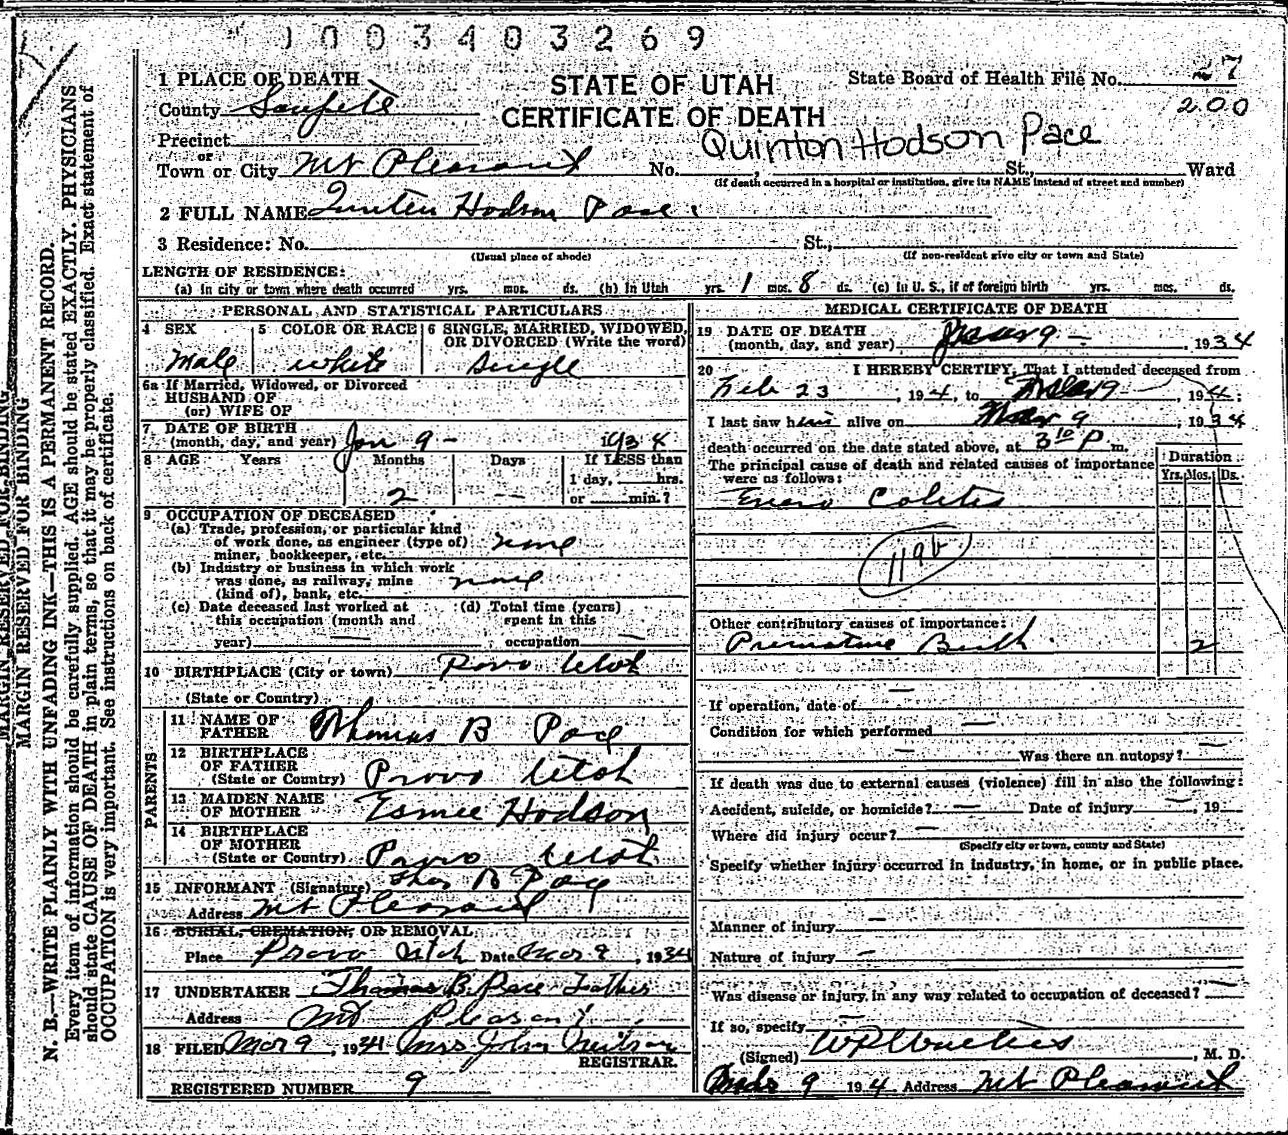 1003403269
1 PLACE OF DEATH
STATE OF UTAH
CERTIFICATE OF DEATH
State Board of Health File No. 27
200
County Sanpete
Precinct
or
Town or City Mt Pleasant No. St., Ward
Quinton Hodson Pace
(If death occurred in a hospital or institution, give its NAME instead of street and number)
2 FULL NAME Quinten Hodson Pace
3 Residence: No. St.,
(Usual place of abode) (If non-resident give city or town and State)
LENGTH OF RESIDENCE:
(a) In city or town where death occurred yrs. mos. ds. (b) In Utah yrs. 1 mos. 8 ds. (c) In U. S., if of foreign birth yrs. mos. ds.
PERSONAL AND STATISTICAL PARTICULARS
4 SEX 5 COLOR OR RACE 6 SINGLE, MARRIED, WIDOWED, OR DIVORCED (Write the word)
Male white Single
6a If Married, Widowed, or Divorced
HUSBAND OF
(or) WIFE OF
7 DATE OF BIRTH
(month, day, and year) Jan 9 - 1934
8 AGE Years Months Days If LESS than
1 day, hrs.
2 — or min.?
9 OCCUPATION OF DECEASED
(a) Trade, profession, or particular kind
of work done, as engineer (type of) none
miner, bookkeeper, etc.
(b) Industry or business in which work
was done, as railway, mine none
(kind of), bank, etc.
(c) Date deceased last worked at (d) Total time (years)
this occupation (month and spent in this
year) — occupation —
10 BIRTHPLACE (City or town) Provo Utah
(State or Country)
PARENTS
11 NAME OF
FATHER Thomas B Pace
12 BIRTHPLACE
OF FATHER
(State or Country) Provo Utah
13 MAIDEN NAME
OF MOTHER Esmee Hodson
14 BIRTHPLACE
OF MOTHER
(State or Country) Provo Utah
15 INFORMANT (Signature) Thos B Pace
Address Mt Pleasant
16 BURIAL, CREMATION, OR REMOVAL
Place Provo Utah Date Mar 9, 1934
17 UNDERTAKER Thomas B. Pace - Father
Address Mt Pleasant
18 FILED Mar 9, 1934 Mrs John
REGISTRAR.
REGISTERED NUMBER 9
MEDICAL CERTIFICATE OF DEATH
19 DATE OF DEATH
(month, day, and year) 9 — , 1934
20 I HEREBY CERTIFY, That I attended deceased from
Feb 23, 194, to Mar 9, 194.
I last saw him alive on Mar 9, 1934
death occurred on the date stated above, at 3 10 P m.
The principal cause of death and related causes of importance
were as follows:
Duration
Yrs. Mos. Ds.
Entero Colitis
119b
Other contributory causes of importance:
Premature Birth 2
If operation, date of —
Condition for which performed —
— Was there an autopsy? —
If death was due to external causes (violence) fill in also the following:
Accident, suicide, or homicide? — Date of injury —, 19
Where did injury occur? —
(Specify city or town, county and State)
Specify whether injury occurred in industry, in home, or in public place.
Manner of injury —
Nature of injury —
Was disease or injury in any way related to occupation of deceased? —
If so, specify
(Signed) , M. D.
9 194 Address Mt Pleasant
MARGIN RESERVED FOR BINDING
MARGIN RESERVED FOR BINDING
N. B.—WRITE PLAINLY WITH UNFADING INK—THIS IS A PERMANENT RECORD.
Every item of information should be carefully supplied. AGE should be stated EXACTLY. PHYSICIANS
should state CAUSE OF DEATH in plain terms, so that it may be properly classified. Exact statement of
OCCUPATION is very important. See instructions on back of certificate.